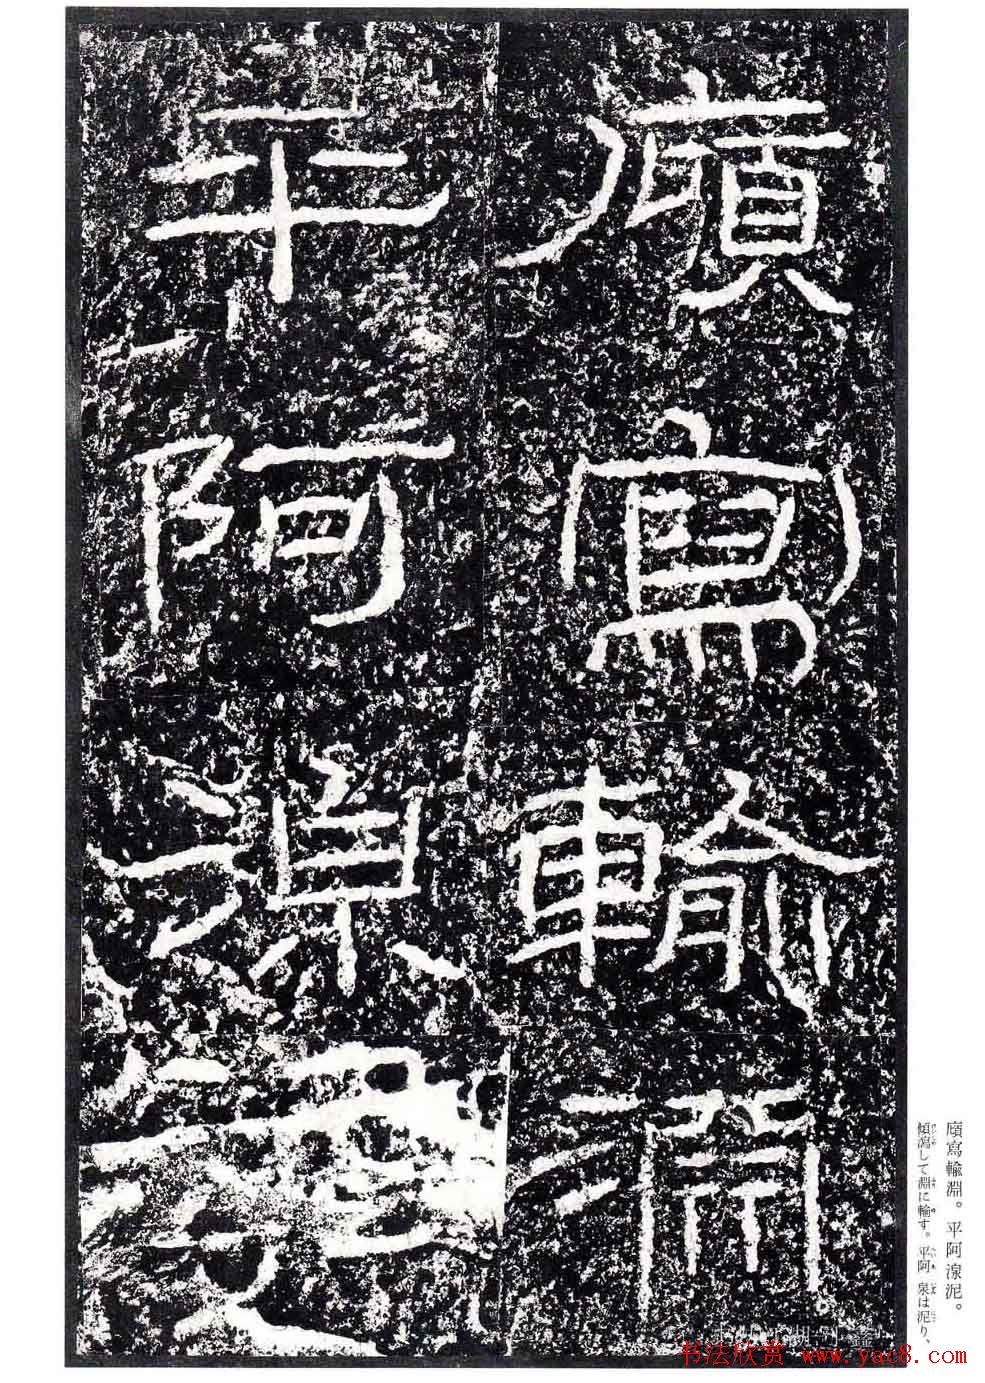 廎寫輸淵
平阿湶
廎寫輸淵。平阿湶泥。
傾瀉して淵に輸す。平阿 泉は泥り、
书法欣赏 www.yac8.com